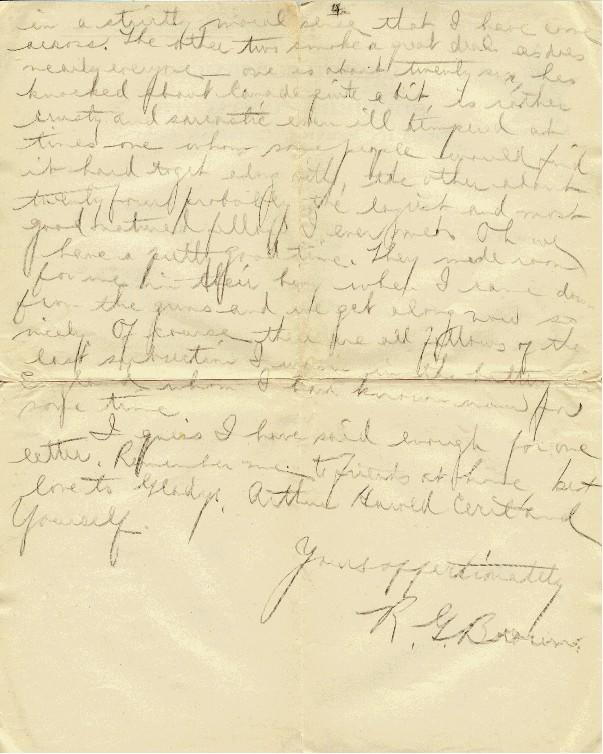 4
in a strictly moral sense that I have come
across. The other two smoke a great deal as does
nearly everyone one is about twenty six, has
knocked about Canada quite a bit, is rather
crusty and sarcastic even ill tempered at
times one whom some people would find
it hard to get along with, the other about
twenty four probably the and most
good natured fellow I ever met. O have
have a pretty good time. They made room
for me in their when I came down
from the guns and we get along now so
nicely. Of course they are all fellows of the
last I was in the
England whom I have known now for
some time
I guess I have said enough for one
letter. Remember me to friends at home but
love to Gladys, Arthur Harold Cecil and
Yourself.
Yours affectionately
R. G. Brown.